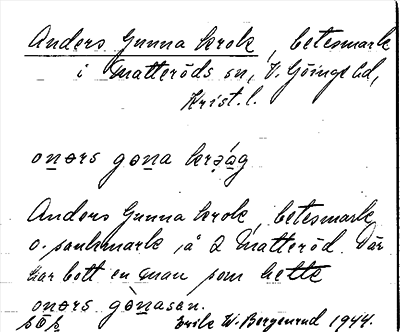 Anders Gunna krok, betesmark
i Matteröds sn, V. Göinge hd,
Krist. l.
onərs gona krəág
Anders Gunna krok, betesmark
o. sankmark, å 2 Matteröd. Där
har bott en man som hette
onərs gònasen.
Erik W. Bergenrud 1944.